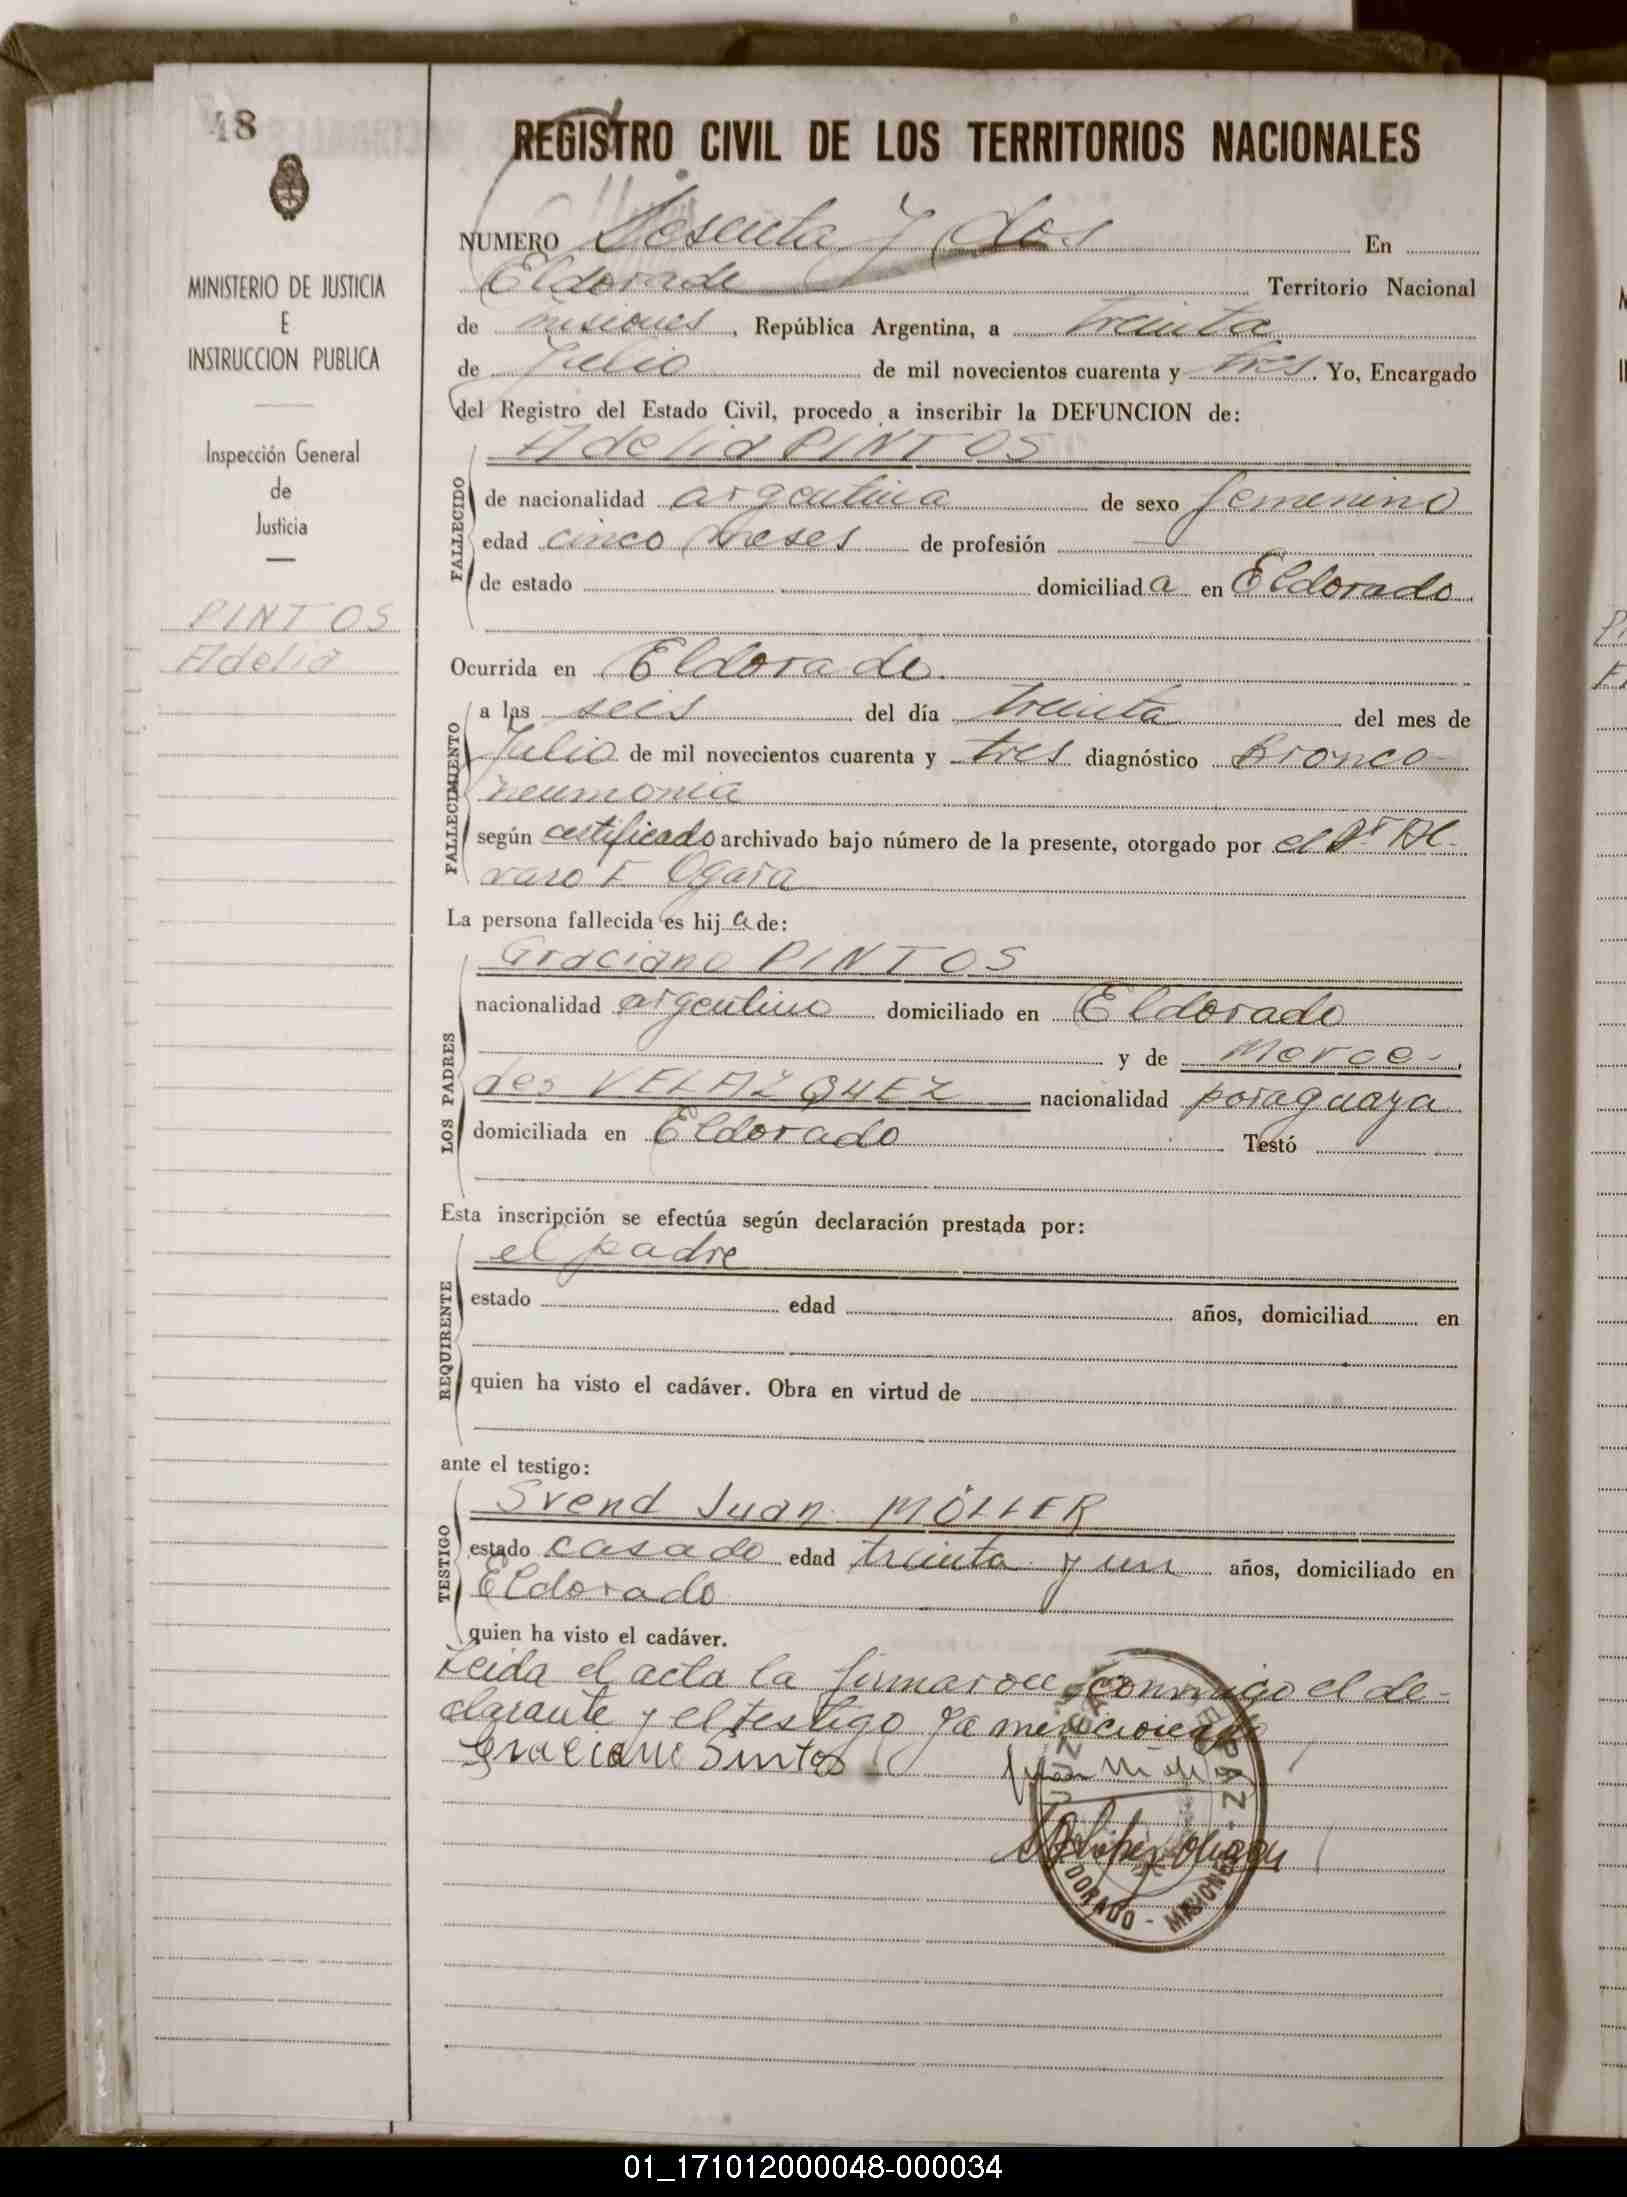 48
MINISTERIO DE JUSTICIA
E
INSTRUCCION PUBLICA
Inspección General
de
Justicia
PINTOS
Adelia
REGISTRO CIVIL DE LOS TERRITORIOS NACIONALES
NUMERO Sesenta y dos En
Eldorado Territorio Nacional
de misiones, República Argentina, a treinta
de Julio de mil novecientos cuarenta y tres. Yo, Encargado
del Registro del Estado Civil, procedo a inscribir la DEFUNCION de:
Adelia PINTOS
FALLECIDO
de nacionalidad argentina de sexo femenino
edad cinco meses de profesión —
de estado domiciliada en Eldorado
Ocurrida en Eldorado.
FALLECIMIENTO
a las seis del día treinta del mes de
Julio de mil novecientos cuarenta y tres diagnóstico bronco-
neumonia
según certificado archivado bajo número de la presente, otorgado por el Dr. Al-
varo F. Ogara
La persona fallecida es hija de:
LOS PADRES
Graciano PINTOS
nacionalidad argentino domiciliado en Eldorado
y de Merce-
des VELAZQUEZ nacionalidad paraguaya
domiciliada en Eldorado Testó
Esta inscripción se efectúa según declaración prestada por:
REQUIRENTE
el padre
estado edad años, domiciliad en
quien ha visto el cadáver. Obra en virtud de
ante el testigo:
TESTIGO
Svend Juan MÖLLER
estado casado edad treinta y un años, domiciliado en
Eldorado
quien ha visto el cadáver.
Leida el acta la firmaron conmigo el de-
clarante y el testigo ya mencionado
Graciano Pintos
DORADO - MISIONES
01_171012000048-000034